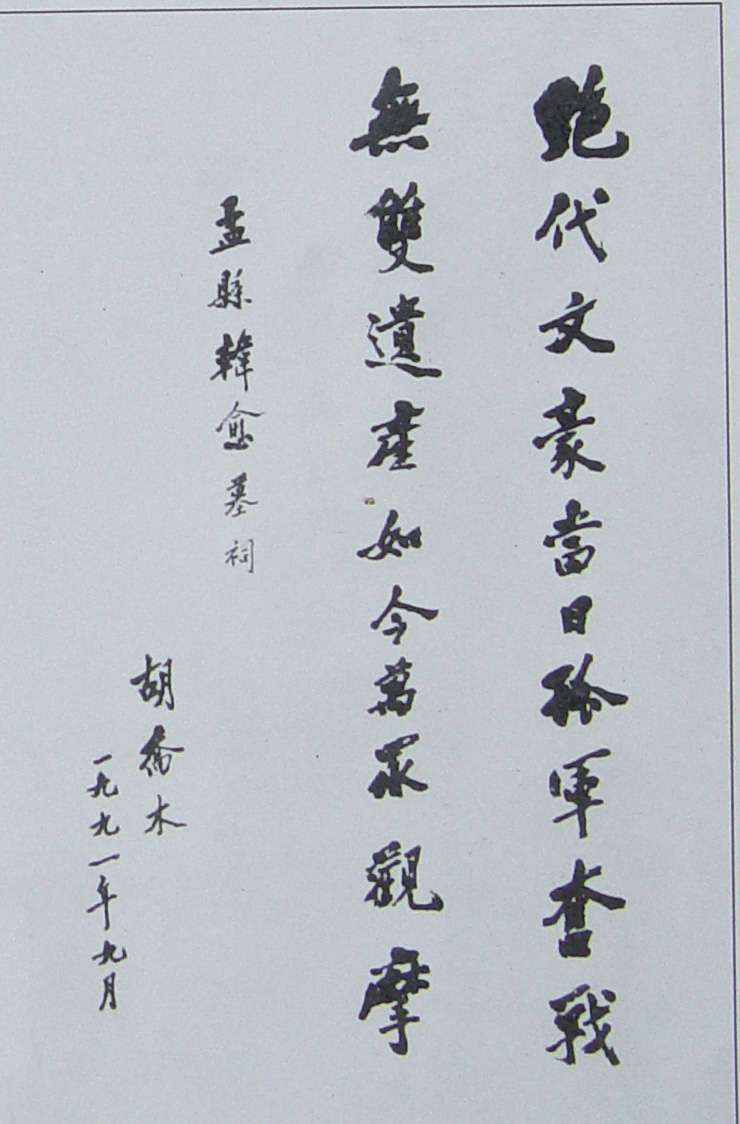 絶代文豪當日孤軍奮戰
無雙遺産如今萬衆觀摩
孟縣韓愈墓祠
胡喬木
一九九一年九月